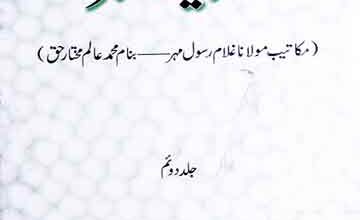 (مکاتیب مولانا غلام رسول مہر —— بنام محمد عالم مختار حق)
جلد دوئم